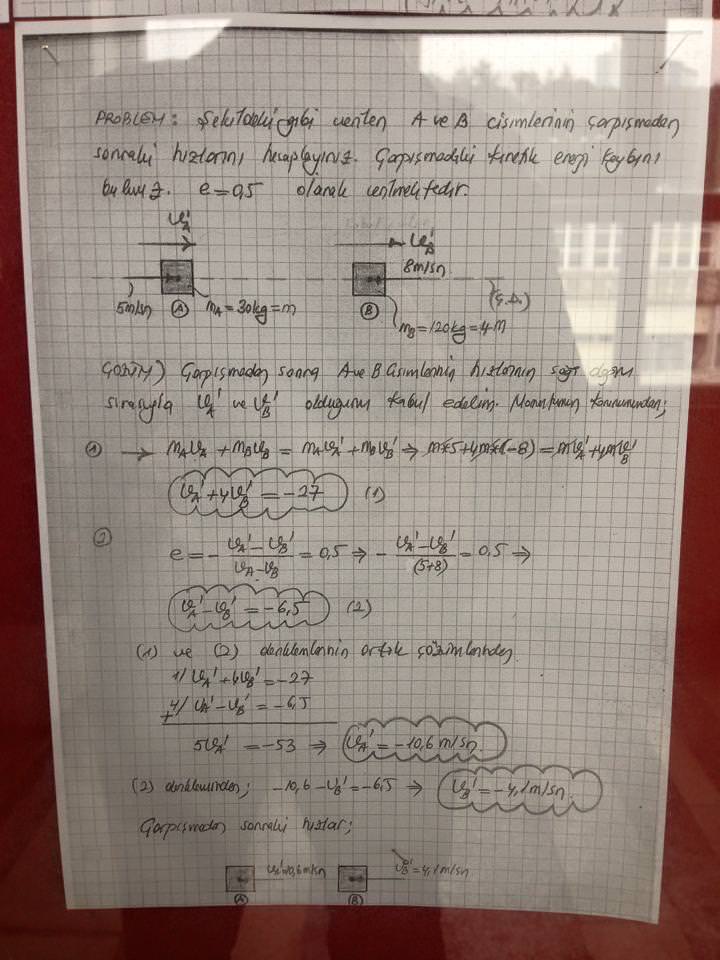 PROBLEM: Şekildeki gibi verilen A ve B cisimlerinin çarpışmadan
sonraki hızlarını hesaplayınız. Çarpışmadaki kinetik enerji kaybını
bulunuz. e=0,5 olarak verilmektedir.
υA' υB'
8m/sn
5m/sn A mA=30kg=m B (Ç.D.)
mB=120kg=4m
ÇÖZÜM) Çarpışmadan sonra A ve B cisimlerinin hızlarının sağa doğru
sırasıyla υA' ve υB' olduğunu kabul edelim. Momentumun korunumundan;
① → mAυA+mBυB=mAυA'+mBυB' ⇒ m*5+4m*(-8)=mυA'+4mυB'
υA'+4υB'=-27 (1)
② e=-(υA'-υB')/(υA-υB)=0,5 ⇒ -(υA'-υB')/(5+8)=0,5 ⇒
υA'-υB'=-6,5 (2)
(1) ve (2) denklemlerinin ortak çözümlerinden
1/ υA'+4υB'=-27
4/ υA'-υB'=-6,5
+
5υA'=-53 ⇒ υA'=-10,6m/sn.
(2) denkleminden; -10,6-υB'=-6,5 ⇒ υB'=-4,1m/sn.
Çarpışmadan sonraki hızlar;
υA'=10,6m/sn υB'=4,1m/sn
A B